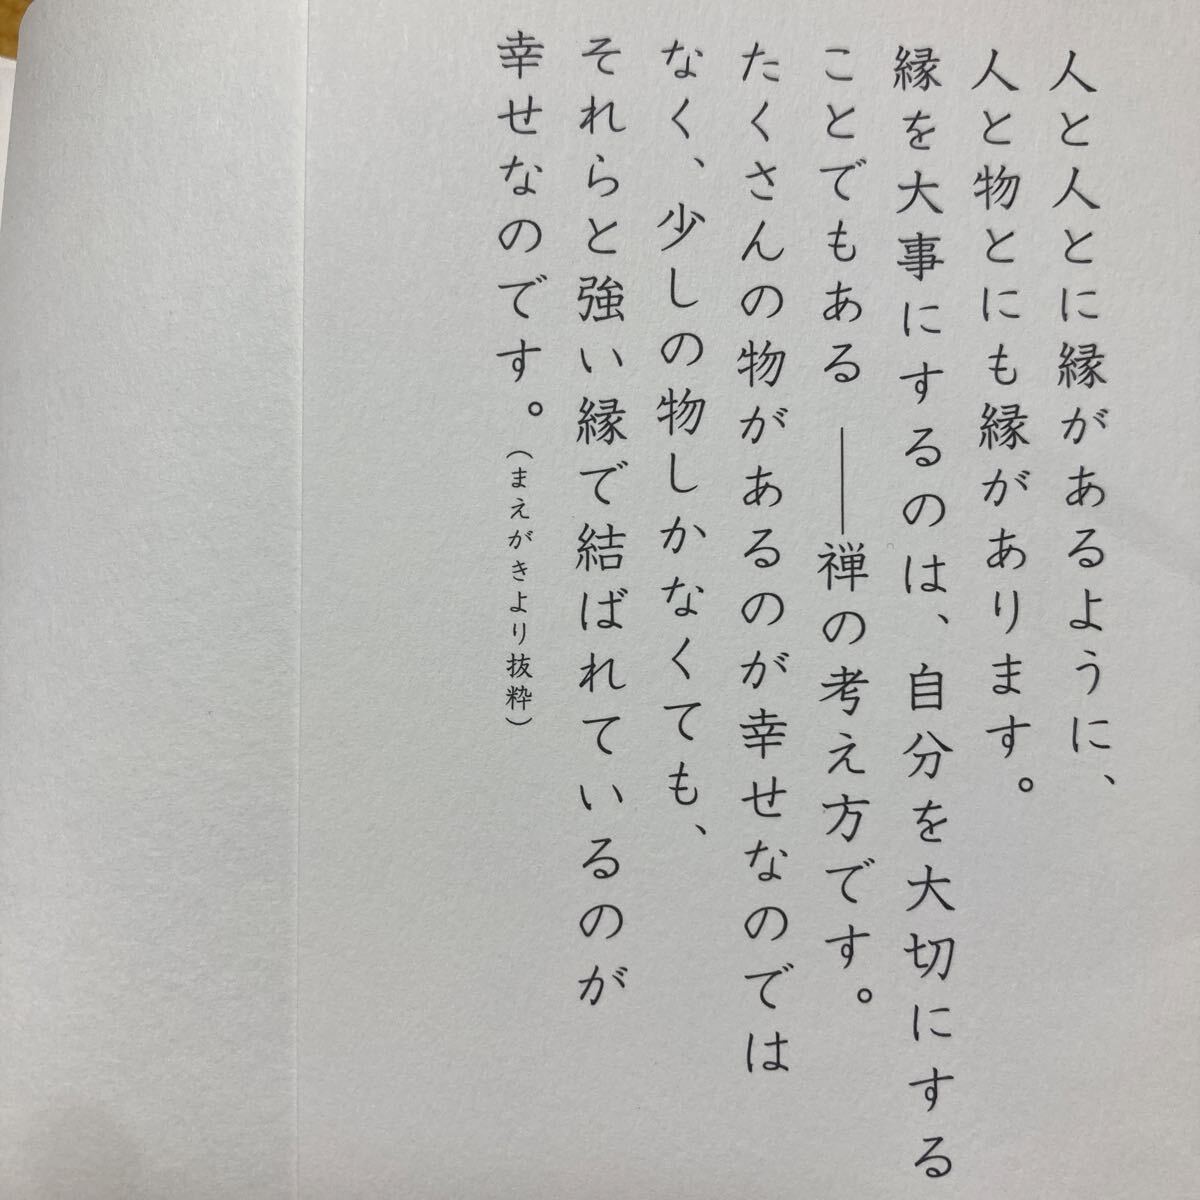 人と人とに縁があるように、
人と物とにも縁があります。
縁を大事にするのは、自分を大切にする
ことでもある ――禅の考え方です。
たくさんの物があるのが幸せなのでは
なく、少しの物しかなくても、
それらと強い縁で結ばれているのが
幸せなのです。（まえがきより抜粋）